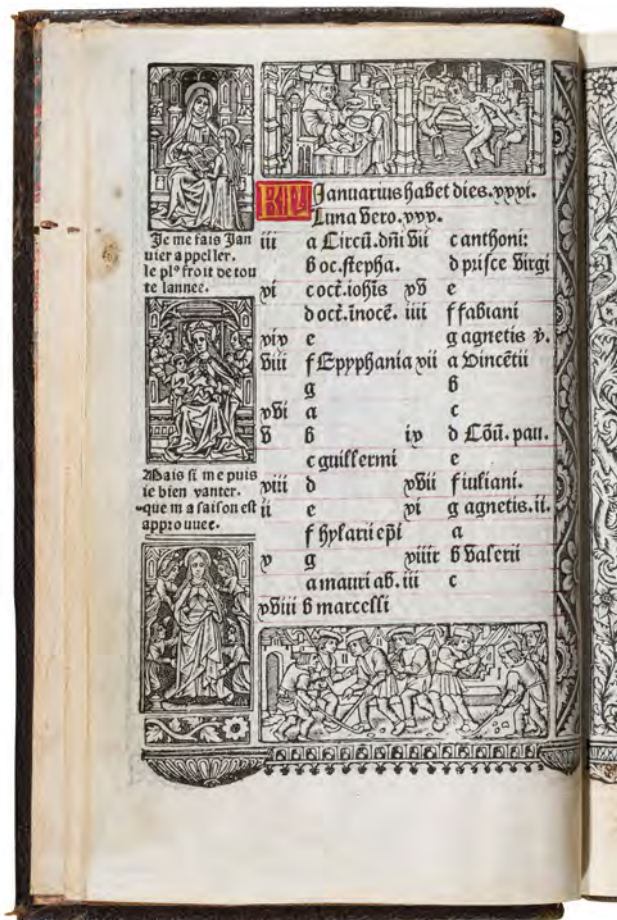 KAL Januarius habet dies.xxxi.
Luna vero.xxx.
Je me fais Jan
uier appeller.
le plꝰ froit de tou
te lannee.
Mais si me puis
ie bien vanter.
que ma saison est
approuuee.
iii a Circū.dñi
b oc.stepha.
xi c oct.iohīs
d oct.īnocē.
xix e
viii f Epyphania
g
xvi a
v b
c guillermi
xiii d
ii e
f hylarii ep̄i
x g
a mauri ab.
xviii b marcelli
vii c anthoni:
d prisce virgi
xv e
iiii f fabiani
g agnetis v.
xii a vincētii
b
c
ix d Cōū. pau.
e
xvii f iuliani.
vi g agnetis.ii.
a
xiiii b valerii
iii c